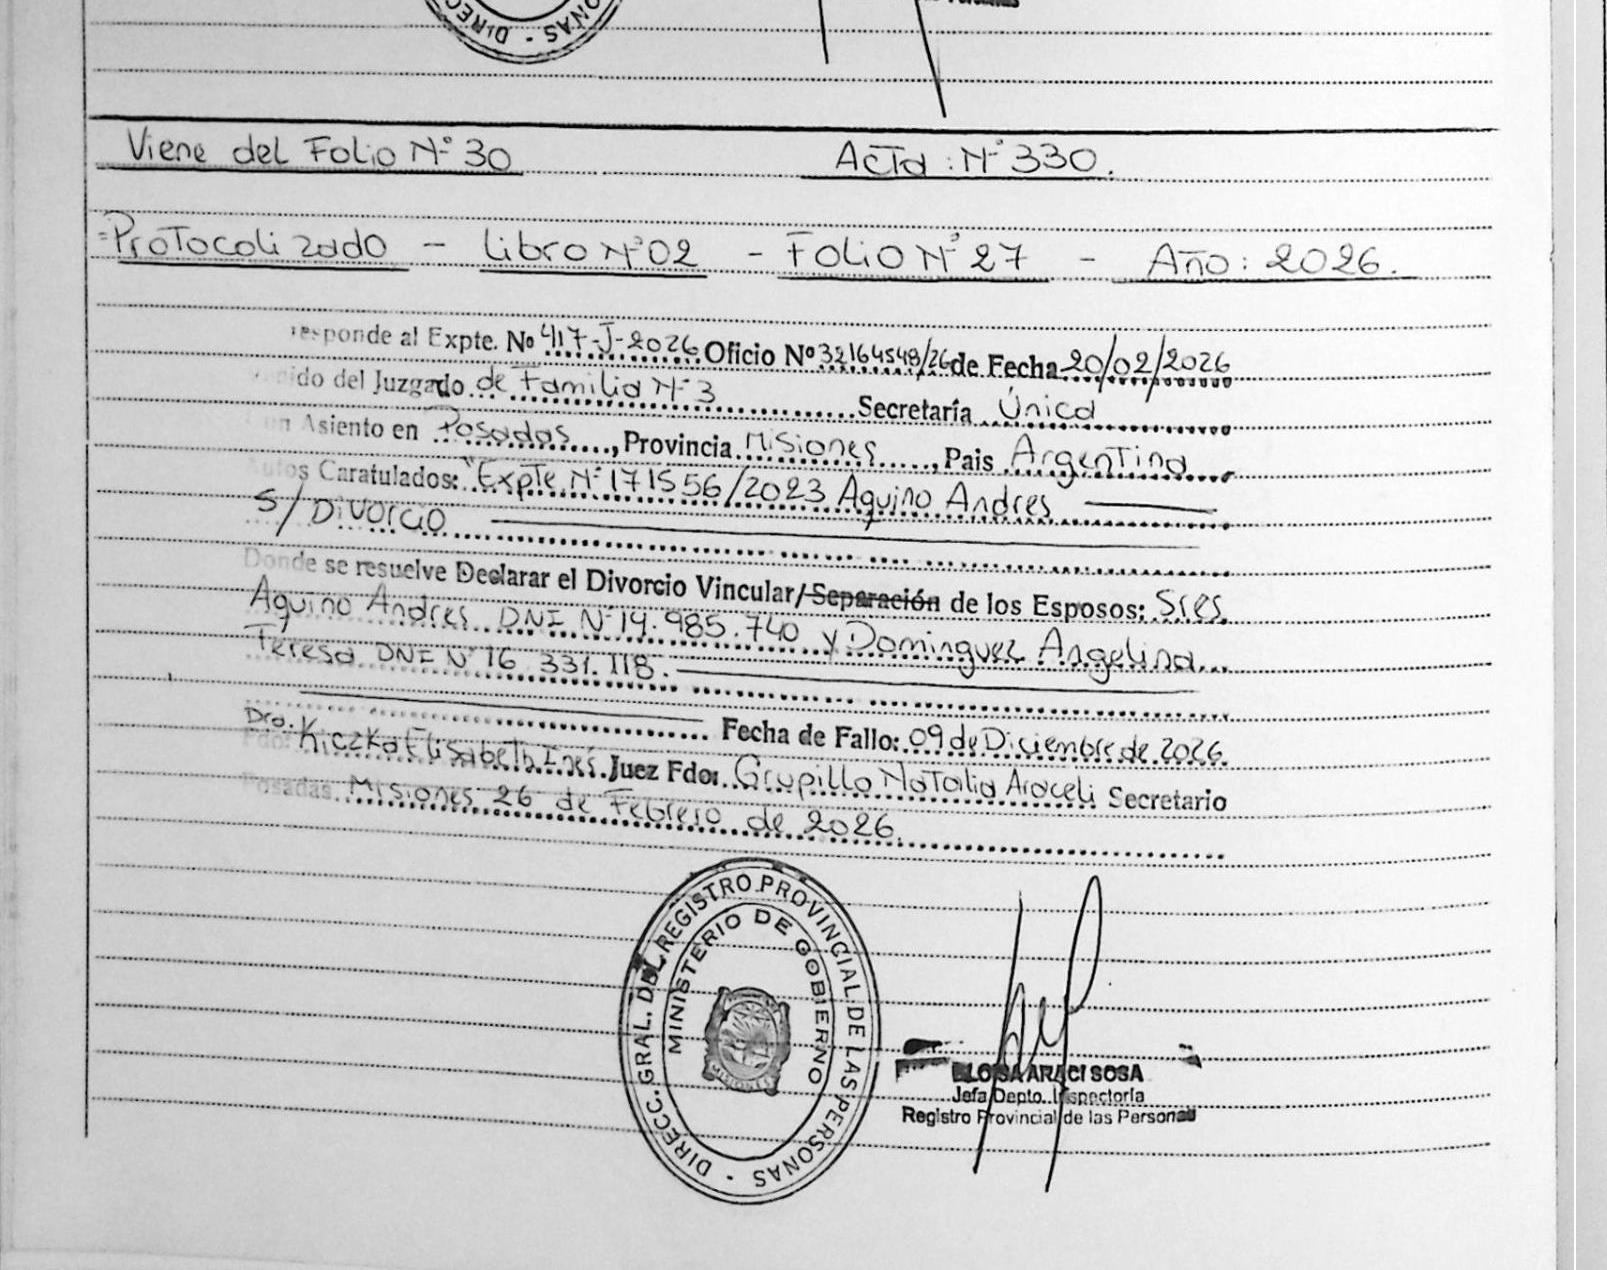 DIREC
ONAS - DIREC
Viene del Folio N° 30 Acta : N° 330.
=Protocolizado - Libro N° 02 - Folio N° 27 - Año: 2026.
responde al Expte. Nº 417-J-2026 Oficio Nº 32164548/26 de Fecha 20/02/2026
nido del Juzgado de Familia N° 3 Secretaría Única
un Asiento en Posadas, Provincia Misiones, Pais Argentina
Autos Caratulados: "Expte. N° 171556/2023 Aquino Andres
s/ Divorcio
Donde se resuelve Declarar el Divorcio Vincular/Separación de los Esposos: Sres.
Aquino Andres DNI N° 14.985.740 y Dominguez Angelina
Teresa DNI N° 16 331.118.
Fecha de Fallo: 09 de Diciembre de 2026.
Dra. Kiczka Elisabeth Inés. Juez Fdo: Grupillo Natalia Araceli Secretario
Posadas Misiones 26 de Febrero de 2026.
DIRECC. GRAL. DEL REGISTRO PROVINCIAL DE LAS PERSONAS -
MINISTERIO DE GOBIERNO
MISIONES
ELOISA ARACI SOSA
Jefa Depto. Inspectoría
Registro Provincial de las Personas